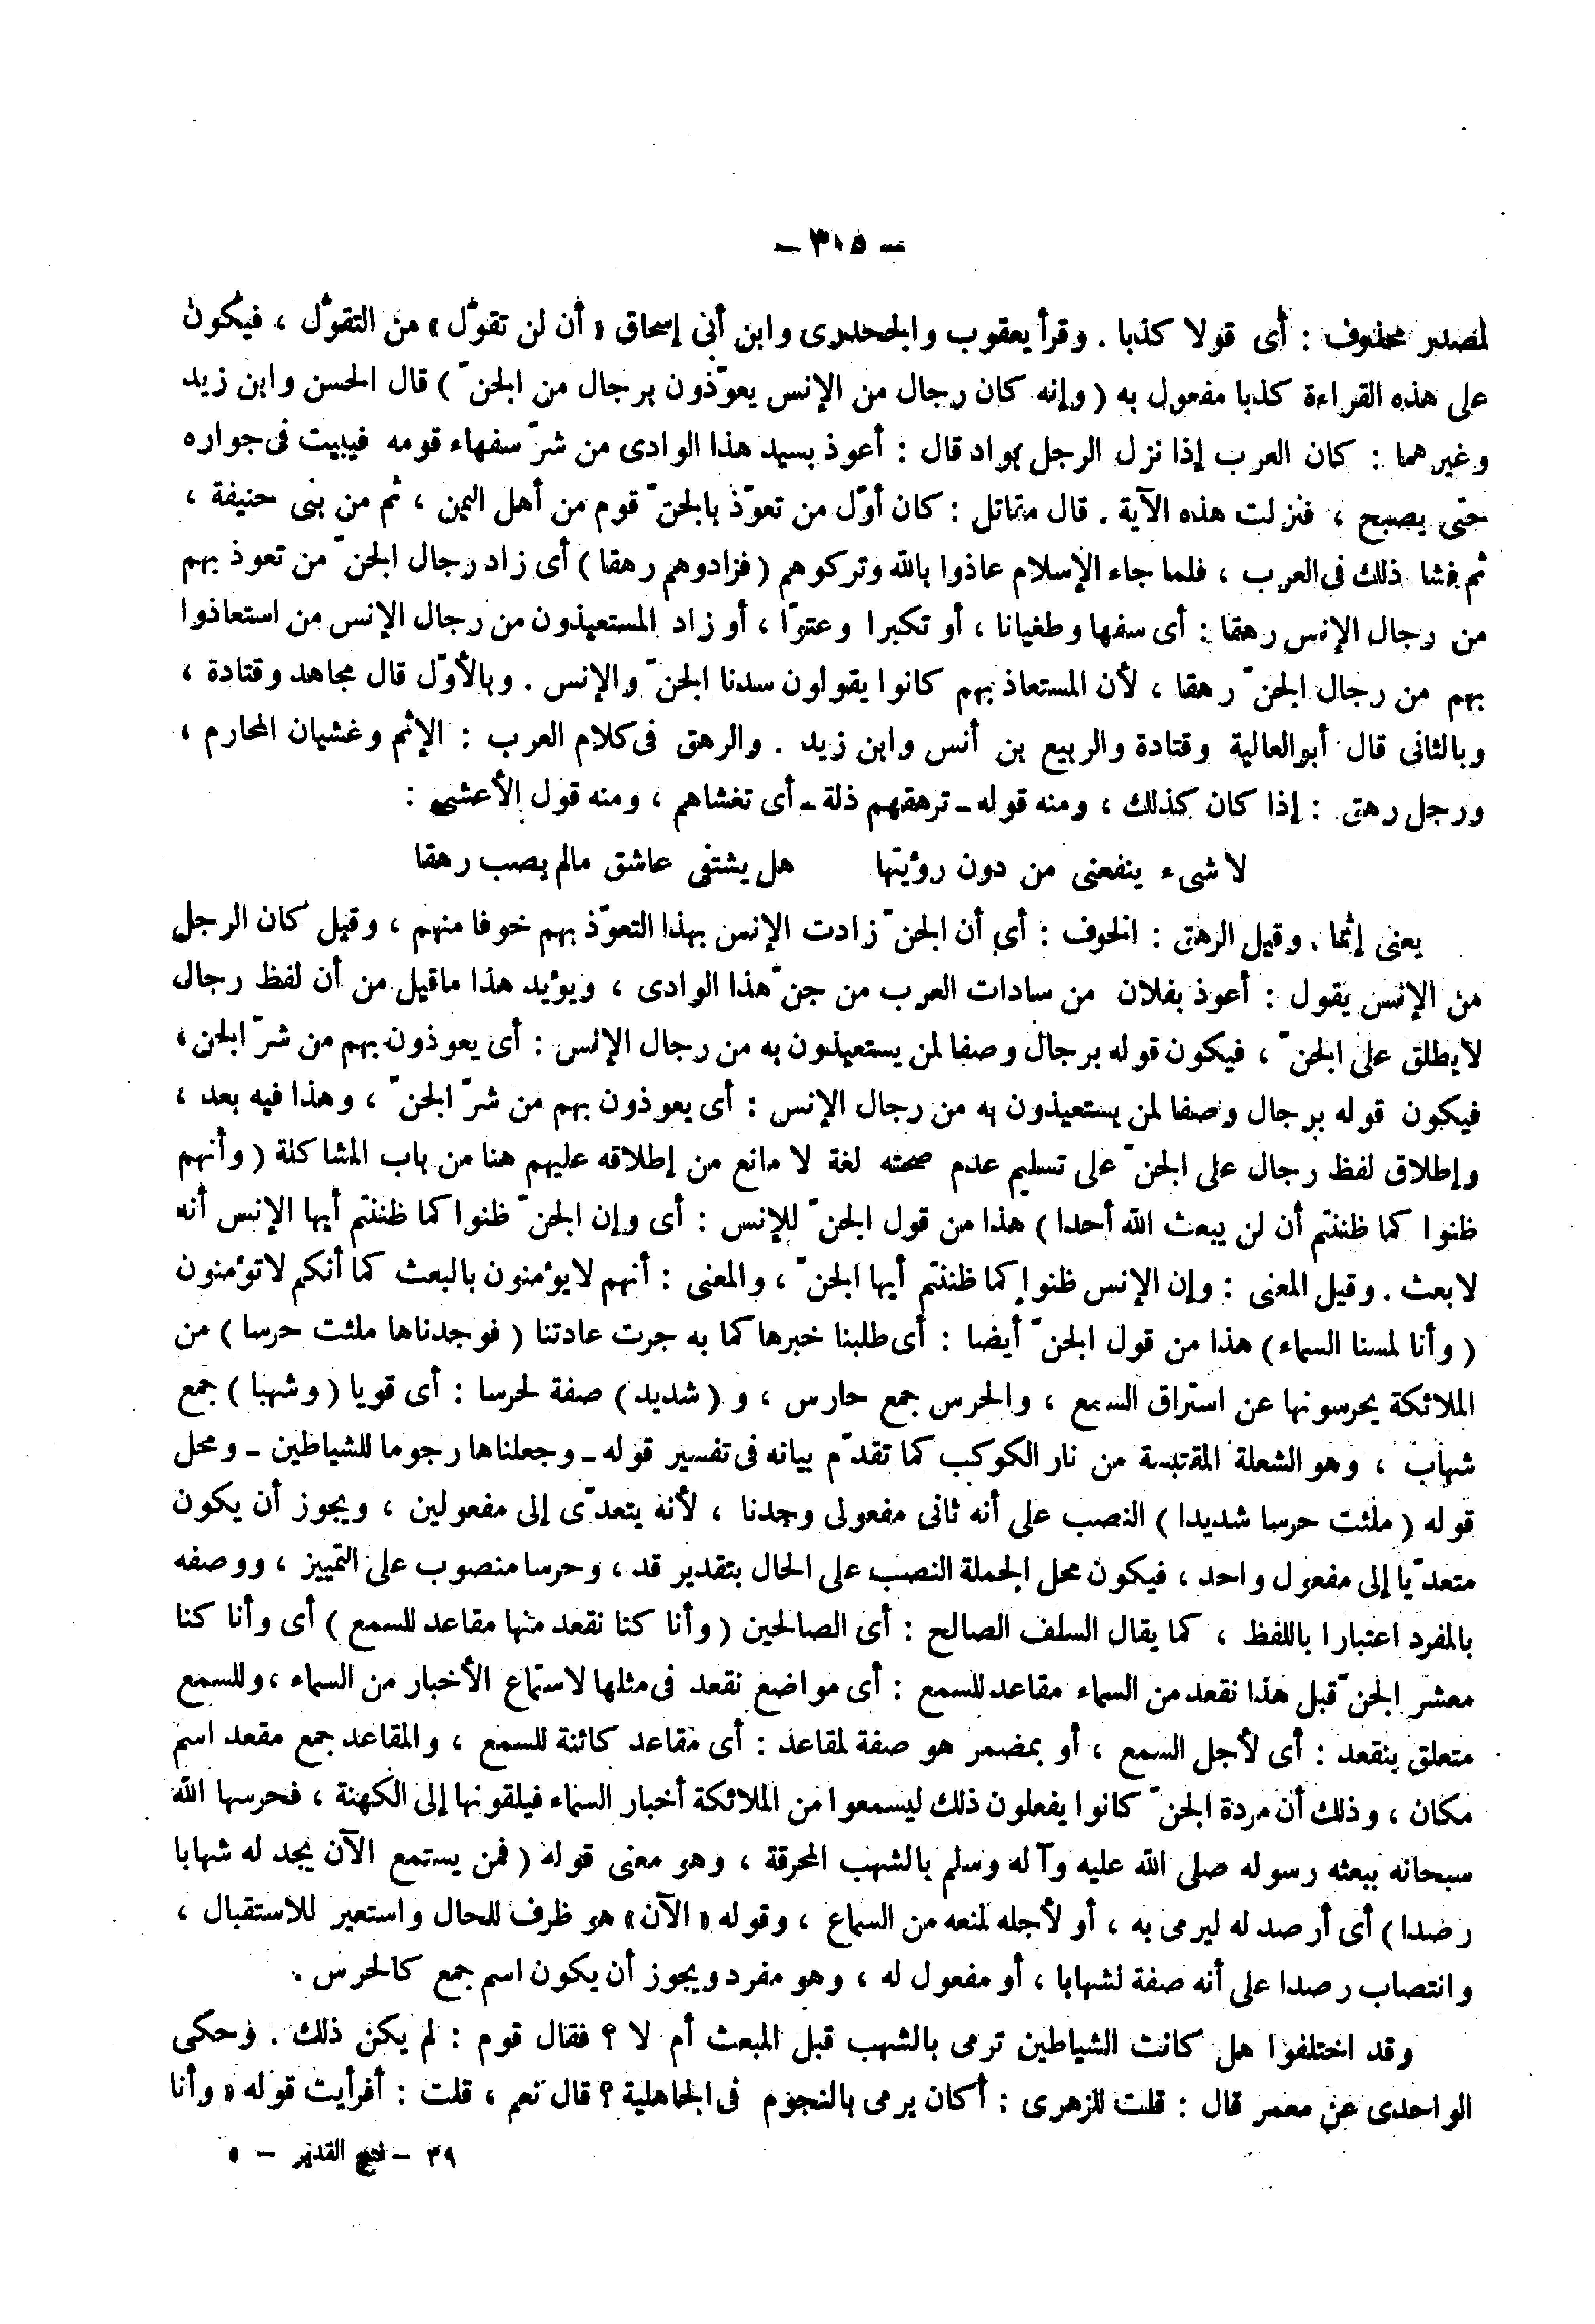 — ٣٠٥ —
لمصدر محذوف : أى قولا كذبا . وقرأ يعقوب والجحدرى وابن أبى إسحاق « أن لن تقوّل » من التقوّل ، فيكون
على هذه القراءة كذبا مفعول به ( وإنه كان رجال من الإنس يعوّذون برجال من الجنّ ) قال الحسن وابن زيد
وغيرهما : كان العرب إذا نزل الرجل بواد قال : أعوذ بسيد هذا الوادى من شرّ سفهاء قومه فيبيت فى جواره
حتى يصبح ، فنزلت هذه الآية . قال مقاتل : كان أوّل من تعوّذ بالجنّ قوم من أهل اليمن ، ثم من بنى حنيفة ،
ثم فشا ذلك فى العرب ، فلما جاء الإسلام عاذوا بالله وتركوهم ( فزادوهم رهقا ) أى زاد رجال الجنّ من تعوذ بهم
من رجال الإنس رهقا : أى سفها وطغيانا ، أو تكبرا وعتوّا ، أو زاد المستعيذون من رجال الإنس من استعاذوا
بهم من رجال الجنّ رهقا ، لأن المستعاذ بهم كانوا يقولون سدنا الجنّ والإنس . وبالأوّل قال مجاهد وقتادة ،
وبالثانى قال أبو العالية وقتادة والربيع بن أنس وابن زيد . والرهق فى كلام العرب : الإثم وغشيان المحارم ،
ورجل رهق : إذا كان كذلك ، ومنه قوله ـ ترهقهم ذلة ـ أى تغشاهم ، ومنه قول الأعشى :
لا شىء ينفعنى من دون رؤيتها هل يشتفى عاشق مالم يصب رهقا
يعنى إثما . وقيل الرهق : الخوف : أى أن الجنّ زادت الإنس بهذا التعوّذ بهم خوفا منهم ، وقيل كان الرجل
من الإنس يقول : أعوذ بفلان من سادات العرب من جنّ هذا الوادى ، ويؤيد هذا ماقيل من أن لفظ رجال
لايطلق على الجنّ ، فيكون قوله برجال وصفا لمن يستعيذون به من رجال الإنس : أى يعوذون بهم من شرّ الجن ،
فيكون قوله برجال وصفا لمن يستعيذون به من رجال الإنس : أى يعوذون بهم من شرّ الجنّ ، وهذا فيه بعد ،
وإطلاق لفظ رجال على الجنّ على تسليم عدم صحته لغة لا مانع من إطلاقه عليهم هنا من باب المشاكلة ( وأنهم
ظنوا كما ظننتم أن لن يبعث الله أحدا ) هذا من قول الجنّ للإنس : أى وإن الجنّ ظنوا كما ظننتم أيها الإنس أنه
لا بعث . وقيل المعنى : وإن الإنس ظنوا كما ظننتم أيها الجنّ ، والمعنى : أنهم لايؤمنون بالبعث كما أنكم لاتؤمنون
( وأنا لمسنا السماء ) هذا من قول الجنّ أيضا : أى طلبنا خبرها كما به جرت عادتنا ( فوجدناها ملئت حرسا ) من
الملائكة يحرسونها عن استراق السمع ، والحرس جمع حارس ، و ( شديد ) صفة لحرسا : أى قويا ( وشهبا ) جمع
شهاب ، وهو الشعلة المقتبسة من نار الكوكب كما تقدّم بيانه فى تفسير قوله ـ وجعلناها رجوما للشياطين ـ ومحل
قوله ( ملئت حرسا شديدا ) النصب على أنه ثانى مفعولى وجدنا ، لأنه يتعدّى إلى مفعولين ، ويجوز أن يكون
متعدّيا إلى مفعول واحد ، فيكون محل الجملة النصب على الحال بتقدير قد ، وحرسا منصوب على التمييز ، ووصفه
بالمفرد اعتبارا باللفظ ، كما يقال السلف الصالح : أى الصالحين ( وأنا كنا نقعد منها مقاعد للسمع ) أى وأنا كنا
معشر الجنّ قبل هذا نقعد من السماء مقاعد للسمع : أى مواضع نقعد فى مثلها لاستماع الأخبار من السماء ، وللسمع
متعلق بنقعد : أى لأجل السمع ، أو بمضمر هو صفة لمقاعد : أى مقاعد كائنة للسمع ، والمقاعد جمع مقعد اسم
مكان ، وذلك أن مردة الجنّ كانوا يفعلون ذلك ليسمعوا من الملائكة أخبار السماء فيلقونها إلى الكهنة ، فحرسها الله
سبحانه ببعثه رسوله صلى الله عليه وآله وسلم بالشهب المحرقة ، وهو معنى قوله ( فمن يستمع الآن يجد له شهابا
رصدا ) أى أرصد له ليرمى به ، أو لأجله لمنعه من السماع ، وقوله « الآن » هو ظرف للحال واستعير للاستقبال ،
وانتصاب رصدا على أنه صفة لشهابا ، أو مفعول له ، وهو مفرد ويجوز أن يكون اسم جمع كالحرس .
وقد اختلفوا هل كانت الشياطين ترمى بالشهب قبل المبعث أم لا ؟ فقال قوم : لم يكن ذلك . وحكى
الواحدى عن معمر قال : قلت للزهرى : أكان يرمى بالنجوم فى الجاهلية ؟ قال نعم ، قلت : أفرأيت قوله « وأنا
٣٩ — فتح القدير — ٥